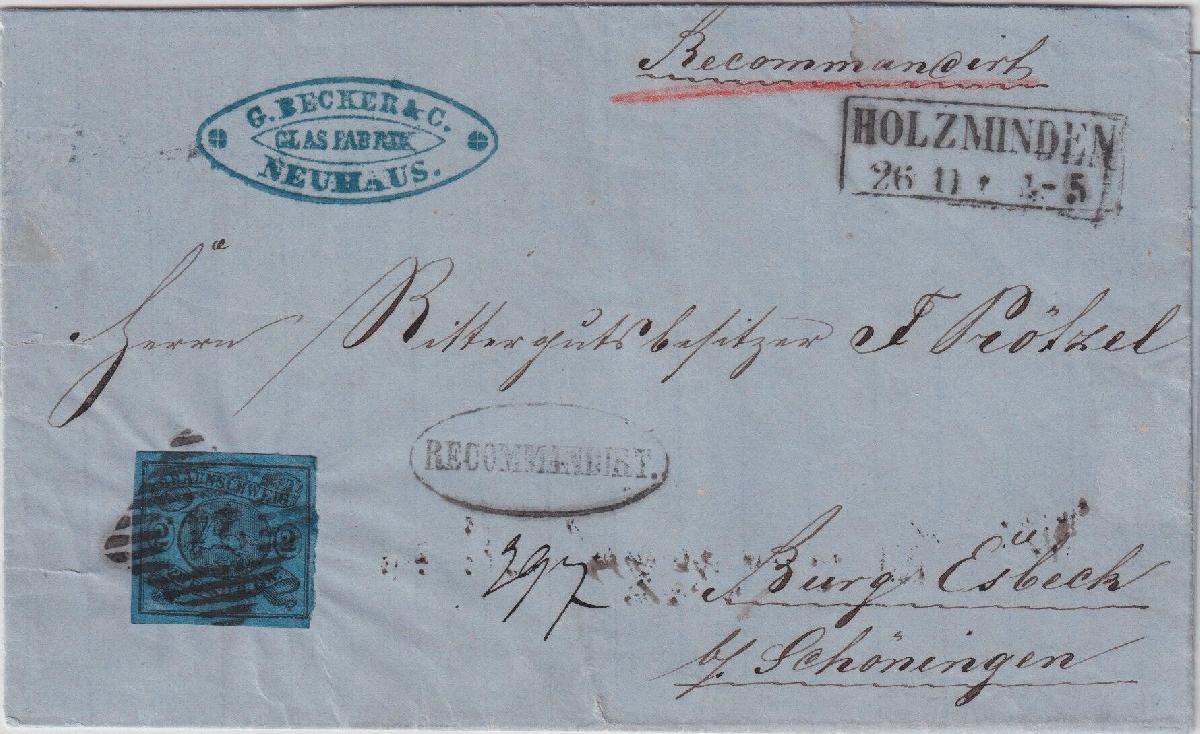 Recommandirt
G. BECKER & C.
GLASFABRIK
NEUHAUS.
HOLZMINDEN
26 11 4-5
Herrn Rittergutsbesitzer F Prötzel
RECOMMANDIRT.
BRAUNSCHWEIG
2 2
297
Burg Esbeck
b/. Schöningen